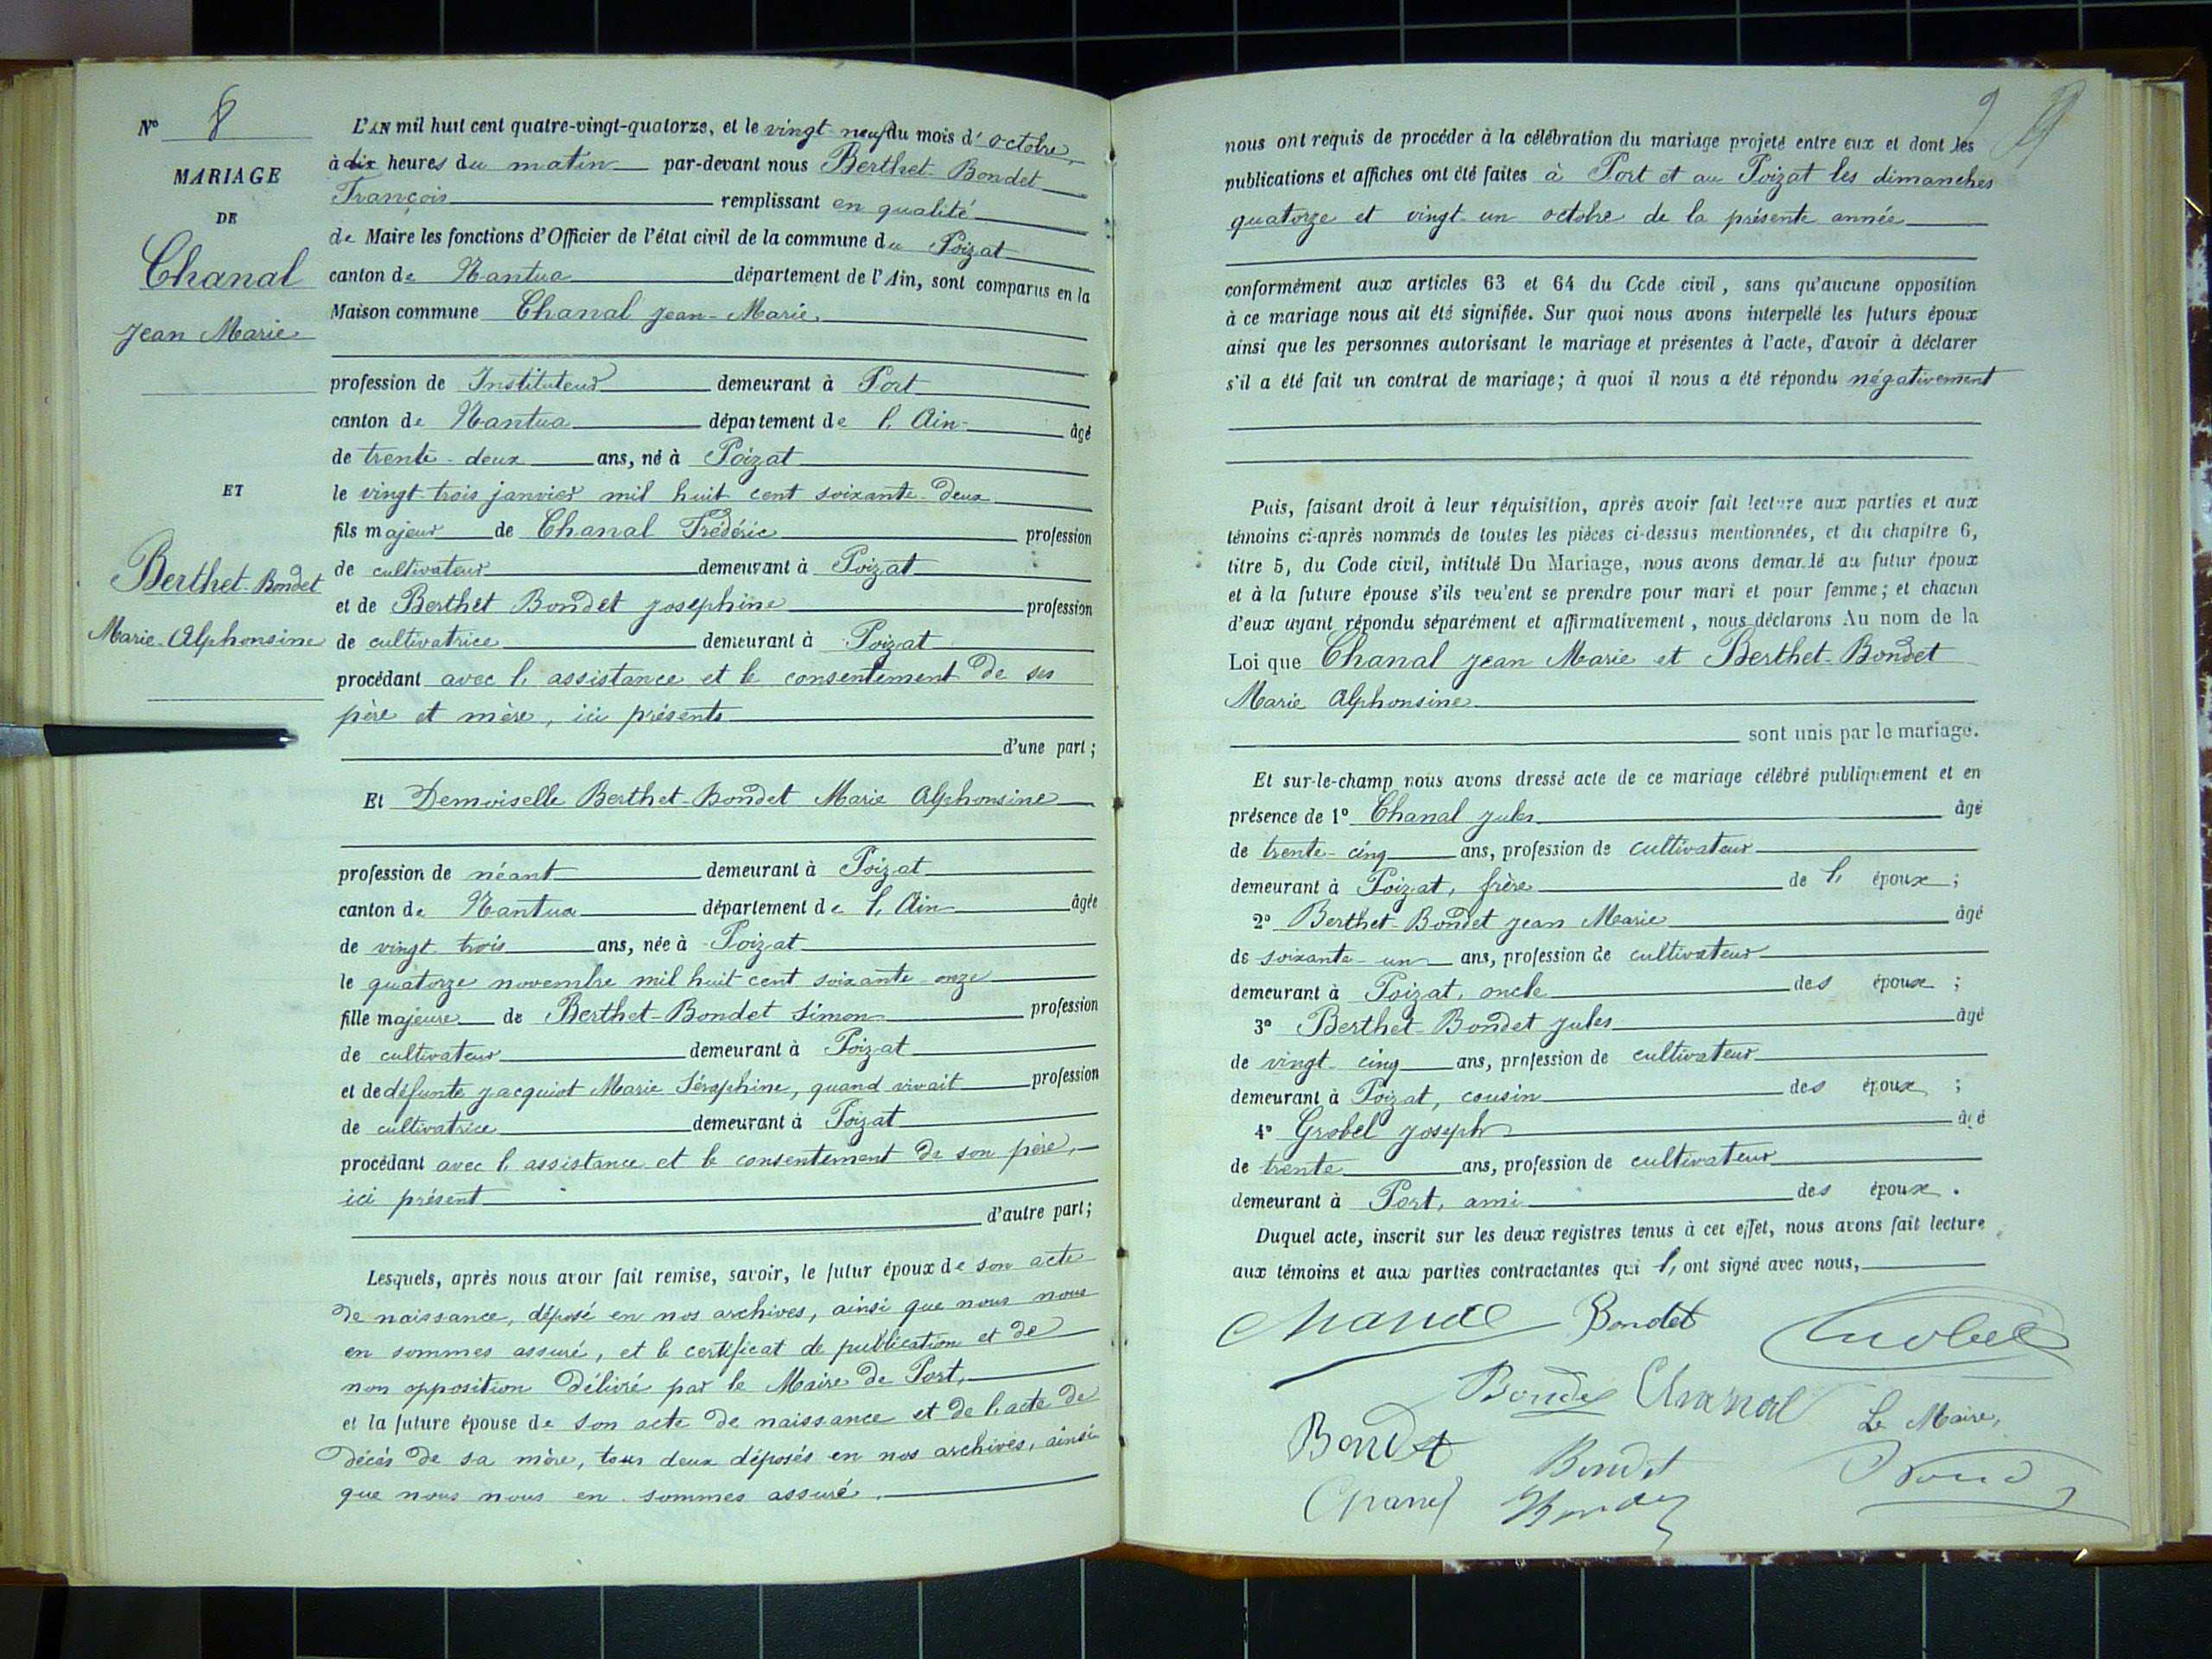 N° 8
MARIAGE
DE
Chanal
Jean Marie
ET
Berthet-Bondet
Marie-Alphonsine
L'AN mil huit cent quatre-vingt-quatorze, et le vingt-neuf du mois d'octobre,
à dix heures du matin par-devant nous Berthet-Bondet
François remplissant en qualité
de Maire les fonctions d'Officier de l'état civil de la commune du Poizat
canton de Nantua département de l'Ain, sont comparus en la
Maison commune Chanal Jean-Marie
profession de Instituteur demeurant à Port
canton de Nantua département de l'Ain âgé
de trente-deux ans, né à Poizat
le vingt-trois janvier mil huit cent soixante-deux
fils majeur de Chanal Frédéric profession
de cultivateur demeurant à Poizat
et de Berthet Bondet Josephine profession
de cultivatrice demeurant à Poizat
procédant avec l'assistance et le consentement de ses
père et mère, ici présents
d'une part;
Et Demoiselle Berthet-Bondet Marie Alphonsine
profession de néant demeurant à Poizat
canton de Nantua département de l'Ain âgée
de vingt trois ans, née à Poizat
le quatorze novembre mil huit cent soixante-onze
fille majeure de Berthet-Bondet Simon profession
de cultivateur demeurant à Poizat
et de défunte Jacquiot Marie Séraphine, quand vivait profession
de cultivatrice demeurant à Poizat
procédant avec l'assistance et le consentement de son père,
ici présent
d'autre part;
Lesquels, après nous avoir fait remise, savoir, le futur époux de son acte
de naissance, déposé en nos archives, ainsi que nous nous
en sommes assuré, et le certificat de publication et de
non opposition délivré par le Maire de Port,
et la future épouse de son acte de naissance et de l'acte de
décès de sa mère, tous deux déposés en nos archives, ainsi
que nous nous en sommes assuré.
9
nous ont requis de procéder à la célébration du mariage projeté entre eux et dont les
publications et affiches ont été faites à Port et au Poizat les dimanches
quatorze et vingt-un octobre de la présente année
conformément aux articles 63 et 64 du Code civil, sans qu'aucune opposition
à ce mariage nous ait été signifiée. Sur quoi nous avons interpellé les futurs époux
ainsi que les personnes autorisant le mariage et présentes à l'acte, d'avoir à déclarer
s'il a été fait un contrat de mariage; à quoi il nous a été répondu négativement
Puis, faisant droit à leur réquisition, après avoir fait lecture aux parties et aux
témoins ci-après nommés de toutes les pièces ci-dessus mentionnées, et du chapitre 6,
titre 5, du Code civil, intitulé Du Mariage, nous avons demandé au futur époux
et à la future épouse s'ils veulent se prendre pour mari et pour femme; et chacun
d'eux ayant répondu séparément et affirmativement, nous déclarons Au nom de la
Loi que Chanal Jean Marie et Berthet-Bondet
Marie Alphonsine
sont unis par le mariage.
Et sur-le-champ nous avons dressé acte de ce mariage célébré publiquement et en
présence de 1° Chanal Jules âgé
de trente-cinq ans, profession de cultivateur
demeurant à Poizat, frère de l'époux;
2° Berthet-Bondet Jean Marie âgé
de soixante-un ans, profession de cultivateur
demeurant à Poizat, oncle des époux;
3° Berthet-Bondet Jules âgé
de vingt-cinq ans, profession de cultivateur
demeurant à Poizat, cousin des époux;
4° Grobel Joseph âgé
de trente ans, profession de cultivateur
demeurant à Port, ami des époux.
Duquel acte, inscrit sur les deux registres tenus à cet effet, nous avons fait lecture
aux témoins et aux parties contractantes qui l'ont signé avec nous,
Chanal Bondet Grobel
Bondet Chanal Le Maire,
Bondet Bondet
Chanal